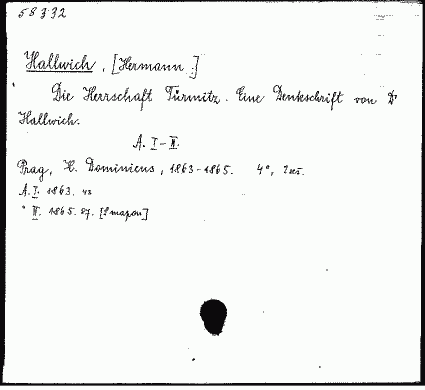 58332
Hallwich, [Hermann]
Die Herrschaft Türmitz. Eine Denkschrift von Dr
Hallwich.
A. I-II.
Prag, H. Dominicus, 1863-1865. 4°,
A. I. 1863. 43
" II. 1865. 87. [2 mapou]